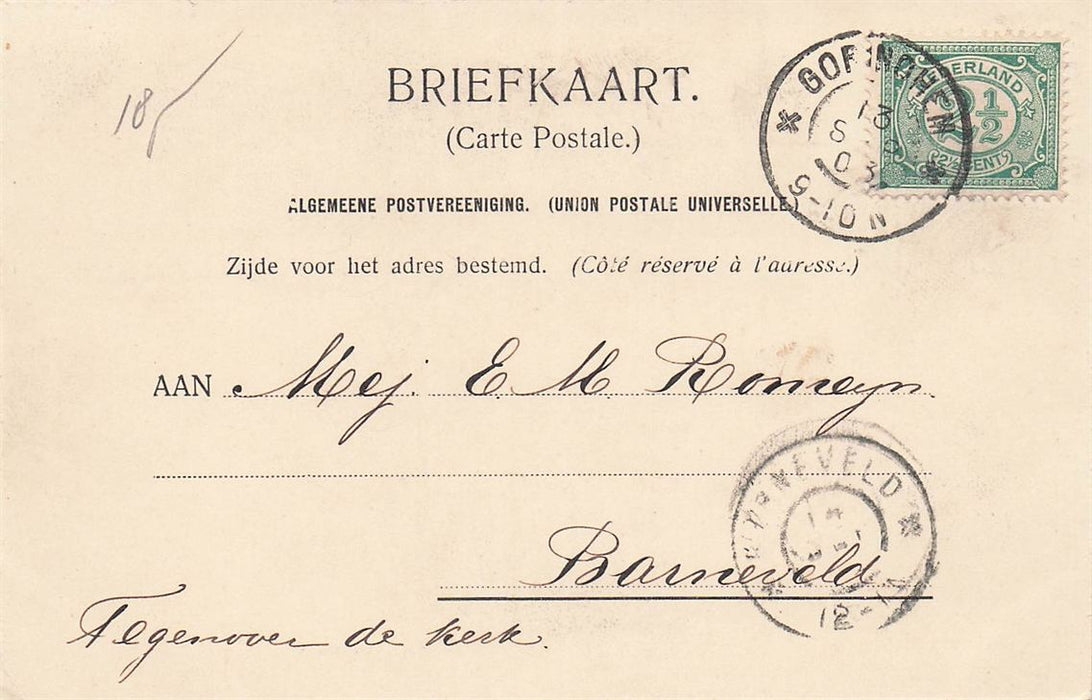 18
BRIEFKAART.
(Carte Postale.)
ALGEMEENE POSTVEREENIGING. (UNION POSTALE UNIVERSELLE)
Zijde voor het adres bestemd. (Côté réservé à l'adresse.)
GORINCHEM
13
03
9-10 N
NEDERLAND
2½
2½ CENT
AAN Mej. E. M. Romeyn
BARNEVELD
12-1
Barneveld
Tegenover de kerk.